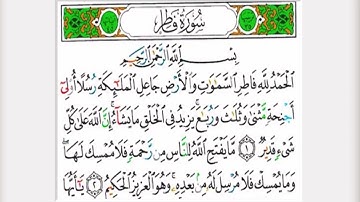 سُورَةُ فَاطِرٍ
بِسْمِ اللَّهِ الرَّحْمَٰنِ الرَّحِيمِ
الْحَمْدُ لِلَّهِ فَاطِرِ السَّمَٰوَٰتِ وَالْأَرْضِ جَاعِلِ الْمَلَٰٓئِكَةِ رُسُلًا أُو۟لِىٓ
أَجْنِحَةٍ مَّثْنَىٰ وَثُلَٰثَ وَرُبَٰعَ ۚ يَزِيدُ فِى الْخَلْقِ مَا يَشَآءُ ۚ إِنَّ اللَّهَ عَلَىٰ كُلِّ
شَىْءٍ قَدِيرٌ ١ مَّا يَفْتَحِ اللَّهُ لِلنَّاسِ مِن رَّحْمَةٍ فَلَا مُمْسِكَ لَهَا ۖ
وَمَا يُمْسِكْ فَلَا مُرْسِلَ لَهُۥ مِنۢ بَعْدِهِۦ ۚ وَهُوَ الْعَزِيزُ الْحَكِيمُ ٢ يَٰٓأَيُّهَا